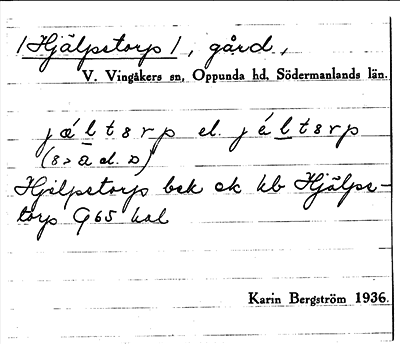 /Hjälpstorp/, gård,
V. Vingåkers sn, Oppunda hd, Södermanlands län.
jǽltsrp el. jéltsrp
(s > a el. ɔ)
Hjälpstorp bek ek kb Hjälps-
torp G65 kal
Karin Bergström 1936.